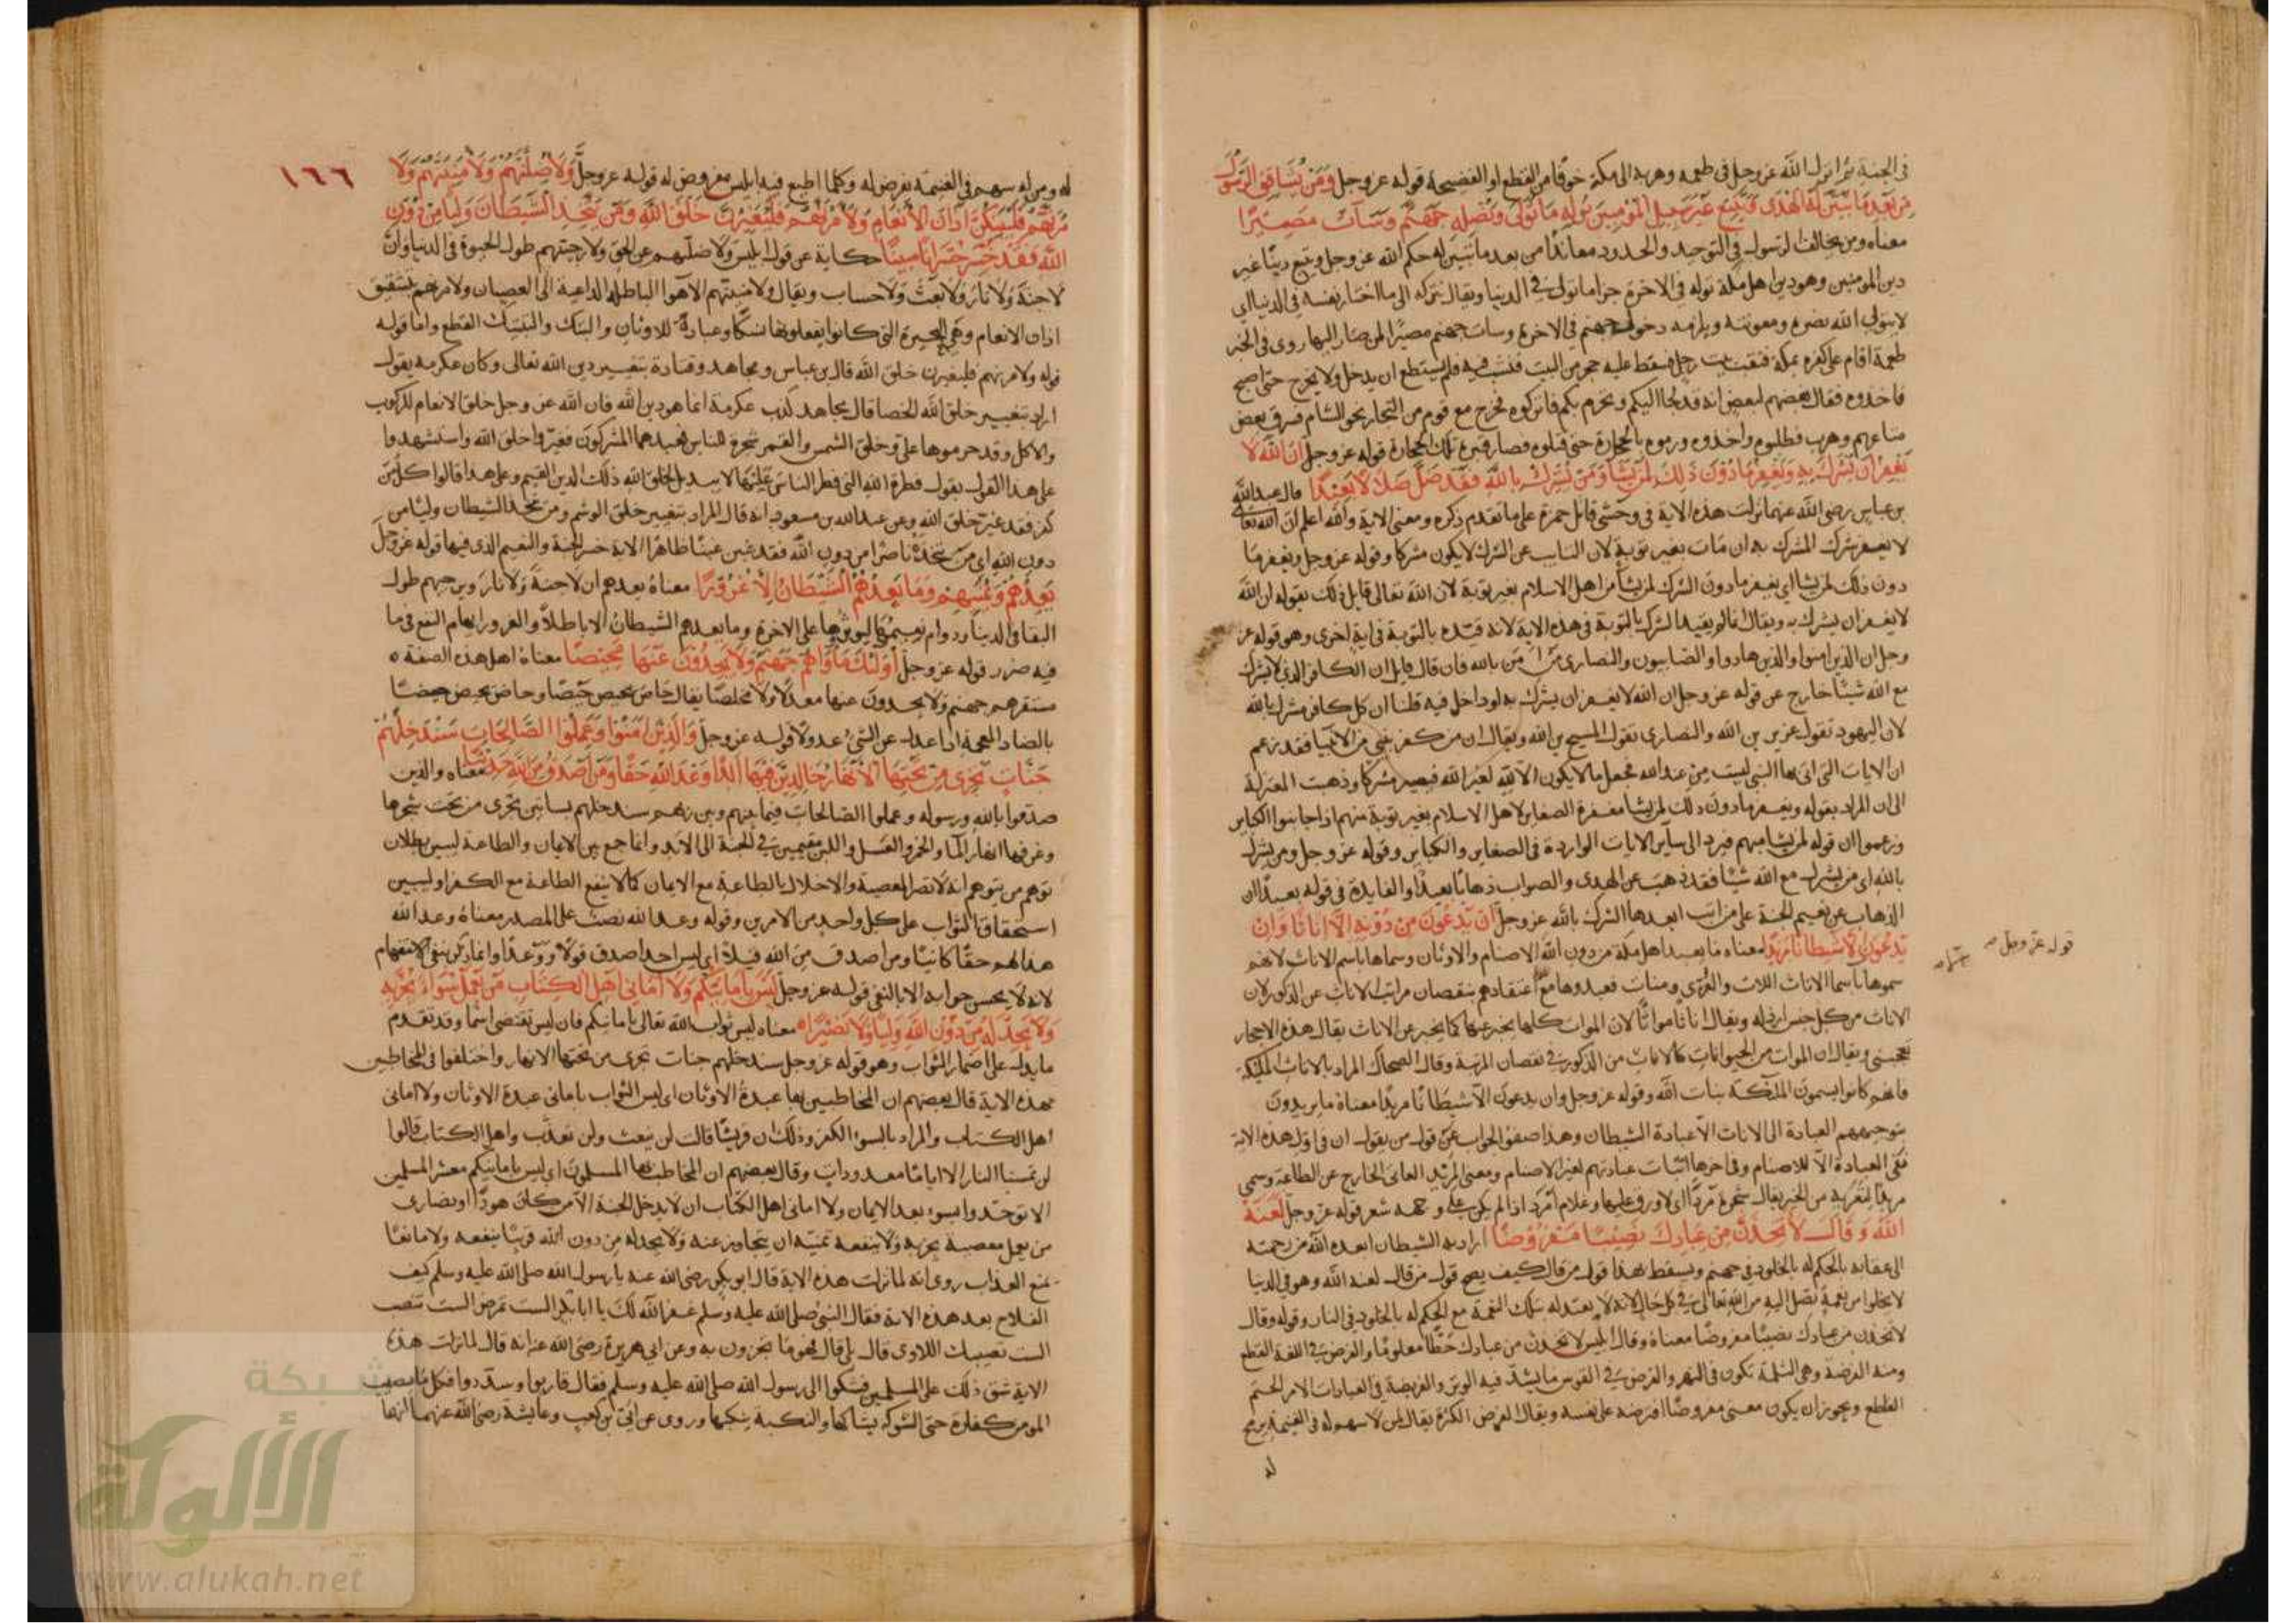 في الجنة ثم انزل الله عز وجل في طعمه وهربه الى مكة خوفا من القطع او الفضيحة قوله عز وجل وَمَنْ يُشَاقِقِ الرَّسُولَ
مِنْ بَعْدِ مَا تَبَيَّنَ لَهُ الْهُدَى وَيَتَّبِعْ غَيْرَ سَبِيلِ الْمُؤْمِنِينَ نُوَلِّهِ مَا تَوَلَّى وَنُصْلِهِ جَهَنَّمَ وَسَآءَتْ مَصِيرًا
معناه ومن يخالف الرسول في التوحيد والحدود معاندا من بعد ما تبين له حكم الله عز وجل ويتبع دينا غير
دين المؤمنين وهو دين اهل مكة نوله في الاخرة جزا ما تولى في الدنيا ويقال نتركه الى ما اختار لنفسه في الدنيا اي
لا يتولى الله نصره ومعونته ويلزمه دخول جهنم في الاخرة وسات جهنم مصيرا لمن صار اليها روي في الخبر
طعمة اقام على كفره بمكة فنقب بيت رجل فسقط عليه حجر من البيت فنشب فيه فلم يستطع ان يدخل ولا يخرج حتى اصبح
فاخذوه فقال بعضهم لبعض انه قد لجا اليكم وتحرم بكم فاتركوه فخرج مع قوم من التجار نحو الشام فسرق بعض
متاعهم وهرب فطلبوه واخذوه ورموه بالحجارة حتى قتلوه فصار قبره تلك الحجارة قوله عز وجل اِنَّ اللهَ لَا
يَغْفِرُ اَنْ يُشْرَكَ بِهِ وَيَغْفِرُ مَا دُوْنَ ذٰلِكَ لِمَنْ يَشَآءُ وَمَنْ يُشْرِكْ بِاللهِ فَقَدْ ضَلَّ ضَلَالًا بَعِيْدًا قال عبد الله
بن عباس رضي الله عنهما نزلت هذه الاية في وحشي قاتل حمزة على ما تقدم ذكره ومعنى الاية والله اعلم ان الله تعالى
لا يغفر شرك المشرك به ان مات بغير توبة لان التايب عن الشرك لا يكون مشركا وقوله عز وجل ويغفر ما
دون ذلك لمن يشا اي يغفر ما دون الشرك لمن يشا من اهل الاسلام بغير توبة لان الله تعالى قابل ذلك بقوله ان الله
لا يغفر ان يشرك به ويقال انما لم يقيد الشرك بالتوبة في هذه الاية لانه قيده بالتوبة في اية اخرى وهو قوله عز
وجل ان الذين امنوا والذين هادوا والصابيون والنصارى من امن بالله فان قال قايل ان الكافر الذي لا يشرك
مع الله شيئا خارج عن قوله عز وجل ان الله لا يغفر ان يشرك به او داخل فيه قلنا ان كل كافر مشرك بالله
لان اليهود تقول عزير بن الله والنصارى تقول المسيح بن الله ويقال ان من كفر بنبي من الانبيا فقد زعم
ان الايات التي اتى بها النبي ليست من عند الله فجعل ما لا يكون الا لله لغير الله فيصير مشركا وذهبت المعتزلة
الى ان المراد بقوله ويغفر ما دون ذلك لمن يشا مغفرة الصغاير لاهل الاسلام بغير توبة منهم اذا جانبوا الكباير
وزعموا ان قوله لمن يشا مبهم فيرد الى ساير الايات الواردة في الصغاير والكباير وقوله عز وجل ومن يشرك
بالله اي من يشرك مع الله شيئا فقد ذهب عن الهدى والصواب ذهابا بعيدا والفايدة في قوله بعيدا ان
الذهاب عن نعيم الجنة على مراتب ابعدها الشرك بالله عز وجل اِنْ يَدْعُوْنَ مِنْ دُوْنِهِ اِلَّا اِنَاثًا وَاِنْ
يَدْعُوْنَ اِلَّا شَيْطَانًا مَرِيْدًا معناه ما يعبد اهل مكة من دون الله الا صنام والاوثان وسماها باسم الاناث لانهم
قوله عز وجل صح
سموها باسما الاناث اللات والعزى ومناة فعبدوها مع اعتقادهم بنقصان مراتب الاناث عن الذكور لان
الاناث من كل جنس ارذله ويقال اناثا مواتا لان الموات كلها يخبر عنها كما يخبر عن الاناث يقال هذه الاحجار
تعجبني ويقال ان الموات من الحيوانات كالاناث من الذكور في نقصان المرتبة وقال الضحاك المراد بالاناث الملئكة
فانهم كانوا يسمون الملئكة بنات الله وقوله عز وجل وان يدعون الا شيطانا مريدا معناه ما يريدون
بتوجيههم العبادة الى الاناث الا عبادة الشيطان وهذا صفو الجواب عن قول من يقول ان في اول هذه الاية
نفى العبادة الا للاصنام وفي اخرها اثبات عبادتهم لغير الاصنام ومعنى المريد العاتي الخارج عن الطاعة وسمي
مريدا لتعريه من الخير يقال شجرة مردا اي لا ورق عليها وغلام امرد اذا لم يكن على وجهه شعر قوله عز وجل لَعَنَهُ
اللهُ وَقَالَ لَاَتَّخِذَنَّ مِنْ عِبَادِكَ نَصِيْبًا مَفْرُوْضًا اراد به الشيطان ابعده الله من رحمته
الى عقابه بالحكم له بالخلود في جهنم ويسقط بهذا قول من قال كيف يصح قول من قال لعنه الله وهو في الدنيا
لا يخلوا من نعمة تصل اليه من الله تعالى في كل حال لانه لا يعتد له بتلك النعمة مع الحكم له بالخلود في النار وقوله وقال
لاتخذن من عبادك نصيبا مفروضا معناه وقال ابليس لاتخذن من عبادك حظا معلوما والفرض في اللغة القطع
ومنه الفرضة وهي الثلمة تكون في النهر والفرض في القوس ما يشد فيه الوتر والفريضة في العبادات الامر الحتم
القاطع ويجوز ان يكون معنى مفروضا افترضه على نفسه ويقال الفرض الكره يقال لمن لا سهم له في الغنيمة
له
١٦٦
له ومن له سهم في الغنيمة يفرض له وكلما اطيع فيه ابليس مفروض له قوله عز وجل وَلَاُضِلَّنَّهُمْ وَلَاُمَنِّيَنَّهُمْ وَلَاٰ
مُرَنَّهُمْ فَلَيُبَتِّكُنَّ اٰذَانَ الْاَنْعَامِ وَلَاٰمُرَنَّهُمْ فَلَيُغَيِّرُنَّ خَلْقَ اللهِ وَمَنْ يَتَّخِذِ الشَّيْطَانَ وَلِيًّا مِنْ دُوْنِ
اللهِ فَقَدْ خَسِرَ خُسْرَانًا مُبِيْنًا حكاية عن قول ابليس ولاضلنهم عن الحق ولارجينهم طول الحيوة في الدنيا وان
لا جنة ولا نار ولا بعث ولا حساب ويقال ولامنينهم الاهوا الباطلة الداعية الى العصيان ولامرنهم بتشقيق
اذان الانعام وهي البحيرة التي كانوا يفعلونها نسكا وعبادة للاوثان والبتك والتبتيك القطع واما قوله
قوله ولامرنهم فليغيرن خلق الله قال بن عباس ومجاهد وقتادة بتغيير دين الله تعالى وكان عكرمة يقول
اراد بتغيير خلق الله الخصا قال مجاهد كذب عكرمة انما هو دين الله فان الله عز وجل خلق الانعام للركوب
والاكل وقد حرموها على وخلق الشمس والقمر سخرة للناس فعبدهما المشركون فغيروا خلق الله واستشهدوا
على هذا القول بقوله فطرة الله التي فطر الناس عليها لا تبديل لخلق الله ذلك الدين القيم وعلى هذا قالوا كل من
كفر فقد غير خلق الله وعن عبد الله بن مسعود انه قال المراد بتغيير خلق الوشم ومن يتخذ الشيطان وليا من
دون الله اي من يتخذه ناصرا من دون الله فقد غبن غبنا ظاهرا لانه خسر الجنة والنعيم الذي فيها قوله عز وجل
يَعِدُهُمْ وَيُمَنِّيْهِمْ وَمَا يَعِدُهُمُ الشَّيْطَانُ اِلَّا غُرُوْرًا معناه يعدهم ان لا جنة ولا نار ويرجيهم طول
البقا في الدنيا ودوام نعيمها ليؤثروها على الاخرة وما يعدهم الشيطان الا باطلا والغرور ايهام النفع فيما
فيه ضرر قوله عز وجل اُولٰئِكَ مَأْوَاهُمْ جَهَنَّمُ وَلَا يَجِدُوْنَ عَنْهَا مَحِيْصًا معناه اهل هذه الصفة
مستقرهم جهنم ولا يجدون عنها معدلا ولا مخلصا يقال حاص يحيص حيصا وجاض يجيض جيضا
بالضاد المعجمة اذا عدل عن الشي عدولا قوله عز وجل وَالَّذِيْنَ اٰمَنُوْا وَعَمِلُوا الصَّالِحَاتِ سَنُدْخِلُهُمْ
جَنَّاتٍ تَجْرِيْ مِنْ تَحْتِهَا الْاَنْهَارُ خَالِدِيْنَ فِيْهَا اَبَدًا وَعْدَ اللهِ حَقًّا وَمَنْ اَصْدَقُ مِنَ اللهِ حَدِيْثًا معناه والذين
صدقوا بالله ورسوله وعملوا الصالحات فيما بينهم وبين ربهم سندخلهم بساتين تجري من تحت شجرها
وغرفها انهار الما والخمر والعسل واللبن مقيمين في الجنة الى الابد وانما جمع بين الايمان والطاعة ليبين بطلان
توهم من يتوهم انه لا تضر المعصية والاخلال بالطاعة مع الايمان كما لا ينفع الطاعة مع الكفر او ليبين
استحقاق الثواب على كل واحد من الامرين وقوله وعد الله نصب على المصدر معناه وعد الله
هذا لهم حقا كائنا ومن اصدق من الله قيلا اي ليس احد اصدق قولا ووعدا وانما ذكر بنفي الاستفهام
لانه لا يحسن جوابه الا بالنفي قوله عز وجل لَيْسَ بِاَمَانِيِّكُمْ وَلَا اَمَانِيِّ اَهْلِ الْكِتَابِ مَنْ يَعْمَلْ سُوْءًا يُجْزَ بِهِ
وَلَا يَجِدْ لَهُ مِنْ دُوْنِ اللهِ وَلِيًّا وَلَا نَصِيْرًا معناه ليس ثواب الله تعالى بامانيكم فان ليس تقتضي اسما وقد تقدم
ما يدل على اضمار الثواب وهو قوله عز وجل سندخلهم جنات تجري من تحتها الانهار واختلفوا في المخاطبين
بهذه الاية قال بعضهم ان المخاطبين بها عبدة الاوثان اي ليس الثواب باماني عبدة الاوثان ولا اماني
اهل الكتاب والمراد بالسوء الكفر وذلك ان قريشا قالت لن نبعث ولن نعذب واهل الكتاب قالوا
لن تمسنا النار الا اياما معدودات وقال بعضهم ان المخاطب بها المسلمون اي ليس بامانيكم معشر المسلمين
الا تؤاخذوا بسوء بعد الايمان ولا اماني اهل الكتاب ان لا يدخل الجنة الا من كان هودا او نصارى
من يعمل معصية يجز به ولا ينفعه تمنيه ان يتجاوز عنه ولا يجد له من دون الله قريبا ينفعه ولا مانعا
يمنع العذاب روي انه لما نزلت هذه الاية قال ابو بكر رضي الله عنه يا رسول الله صلى الله عليه وسلم كيف
الفلاح بعد هذه الاية فقال النبي صلى الله عليه وسلم غفر الله لك يا ابا بكر الست تمرض الست تنصب
الست تصيبك اللاوى قال بلى قال فهو ما تجزون به وعن ابي هريرة رضي الله عنه انه قال لما نزلت هذه
الاية شق ذلك على المسلمين فشكوا الى رسول الله صلى الله عليه وسلم فقال قاربوا وسددوا فكل ما يصيب
المومن كفارة حتى الشوكة يشاكها والنكبة ينكبها وروي عن ابي بن كعب وعايشة رضي الله عنهما انها
شبكة
الألوكة
www.alukah.net